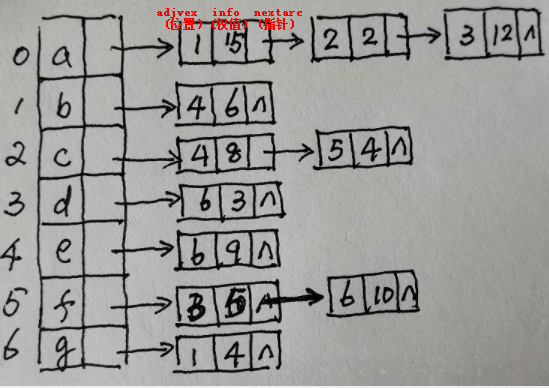 adjvex info nextarc
(位置) (权值) (指针)
0 a 1 15 2 2 3 12 ∧
1 b 4 6 ∧
2 c 4 8 5 4 ∧
3 d 6 3 ∧
4 e 6 9 ∧
5 f 3 5 6 10 ∧
6 g 1 4 ∧